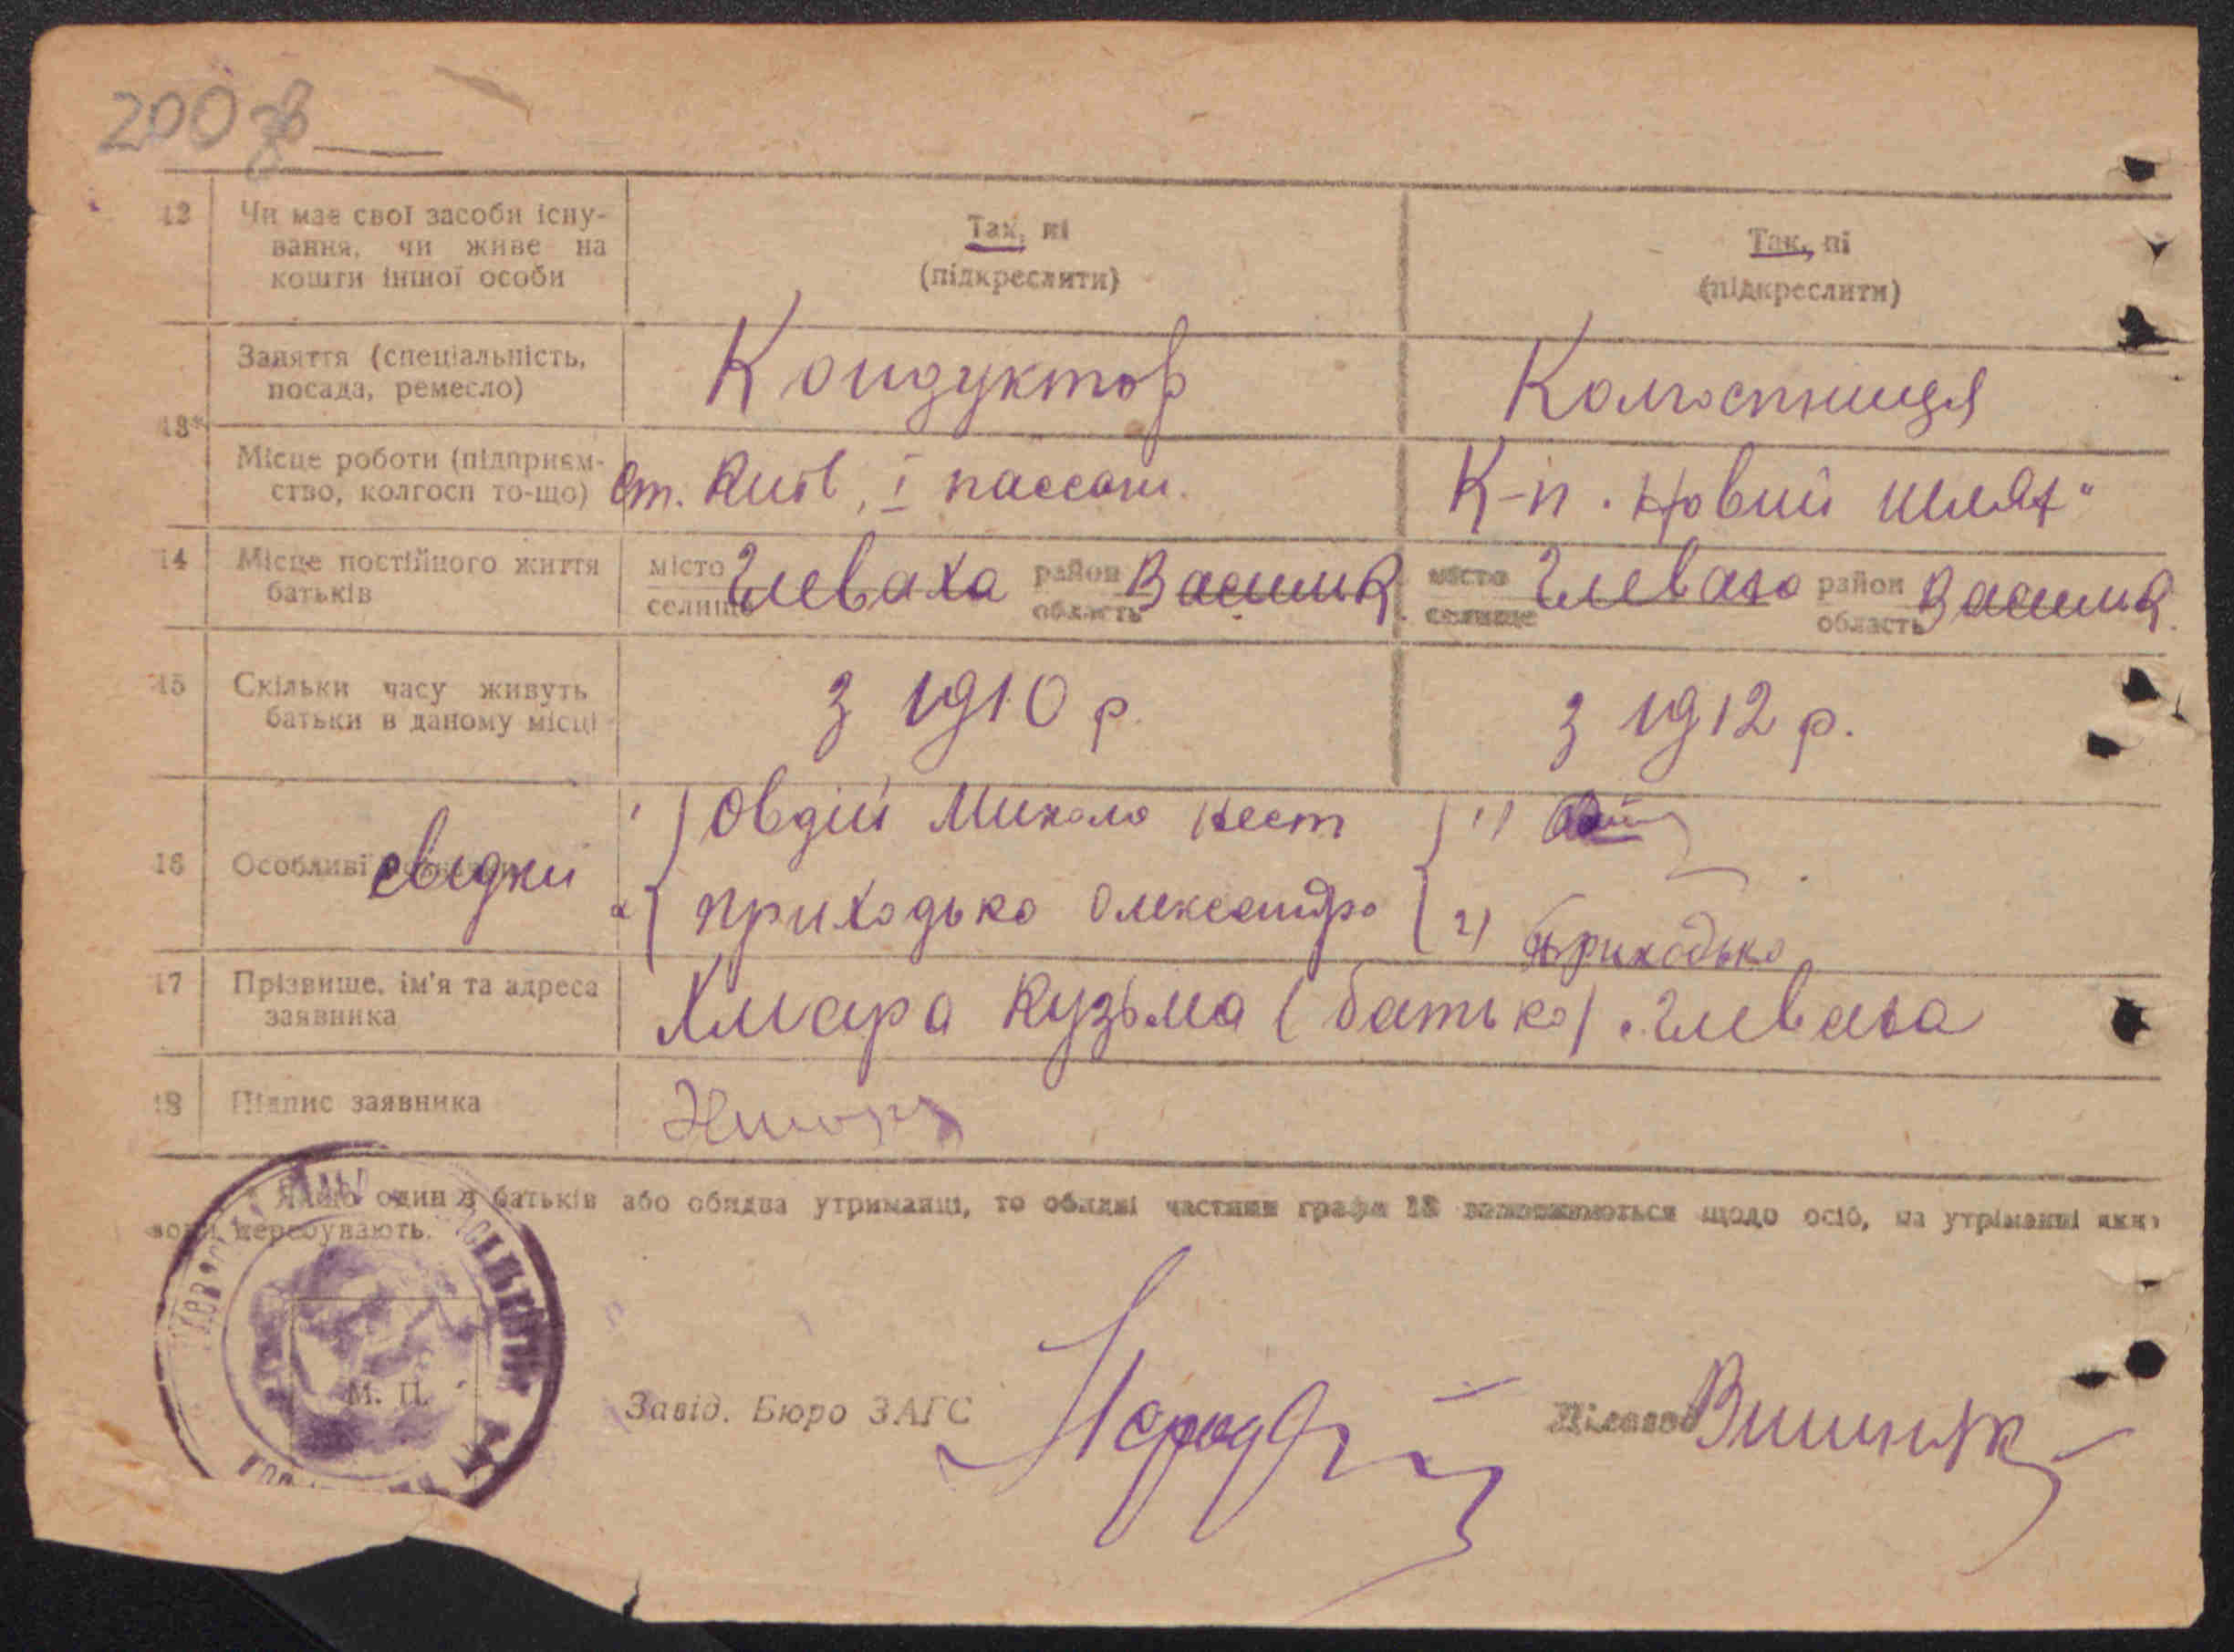 200 зв
12 Чи має свої засоби існу-
вання, чи живе на
кошти іншої особи
Так, ні
(підкреслити)
Так, ні
(підкреслити)
13*
Заняття (спеціальність,
посада, ремесло)
Кондуктор
Колгоспниця
Місце роботи (підприєм-
ство, колгосп то-що)
Ст. Київ, I пассаж.
К-п. Новий шлях"
14 Місце постійного життя
батьків
місто
селище
Глеваха
район
область
Васильк.
місто
селище
Глеваха
район
область
Васильк.
15 Скільки часу живуть
батьки в даному місці
з 1910 р.
з 1912 р.
16 Особливі
свідки
1) Овдій Микола Нест
1)
2) Приходько Олександра
2) Приходько
17 Прізвище, ім'я та адреса
заявника
Хмара Кузьма (батько) с. Глеваха
18 Підпис заявника
Хмара
* Якщо один з батьків або обидва утриманці, то обидві частини графи 13 заповнюються щодо осіб, на утриманні яких
вони перебувають.
М. П.
Завід. Бюро ЗАГС
Діловод